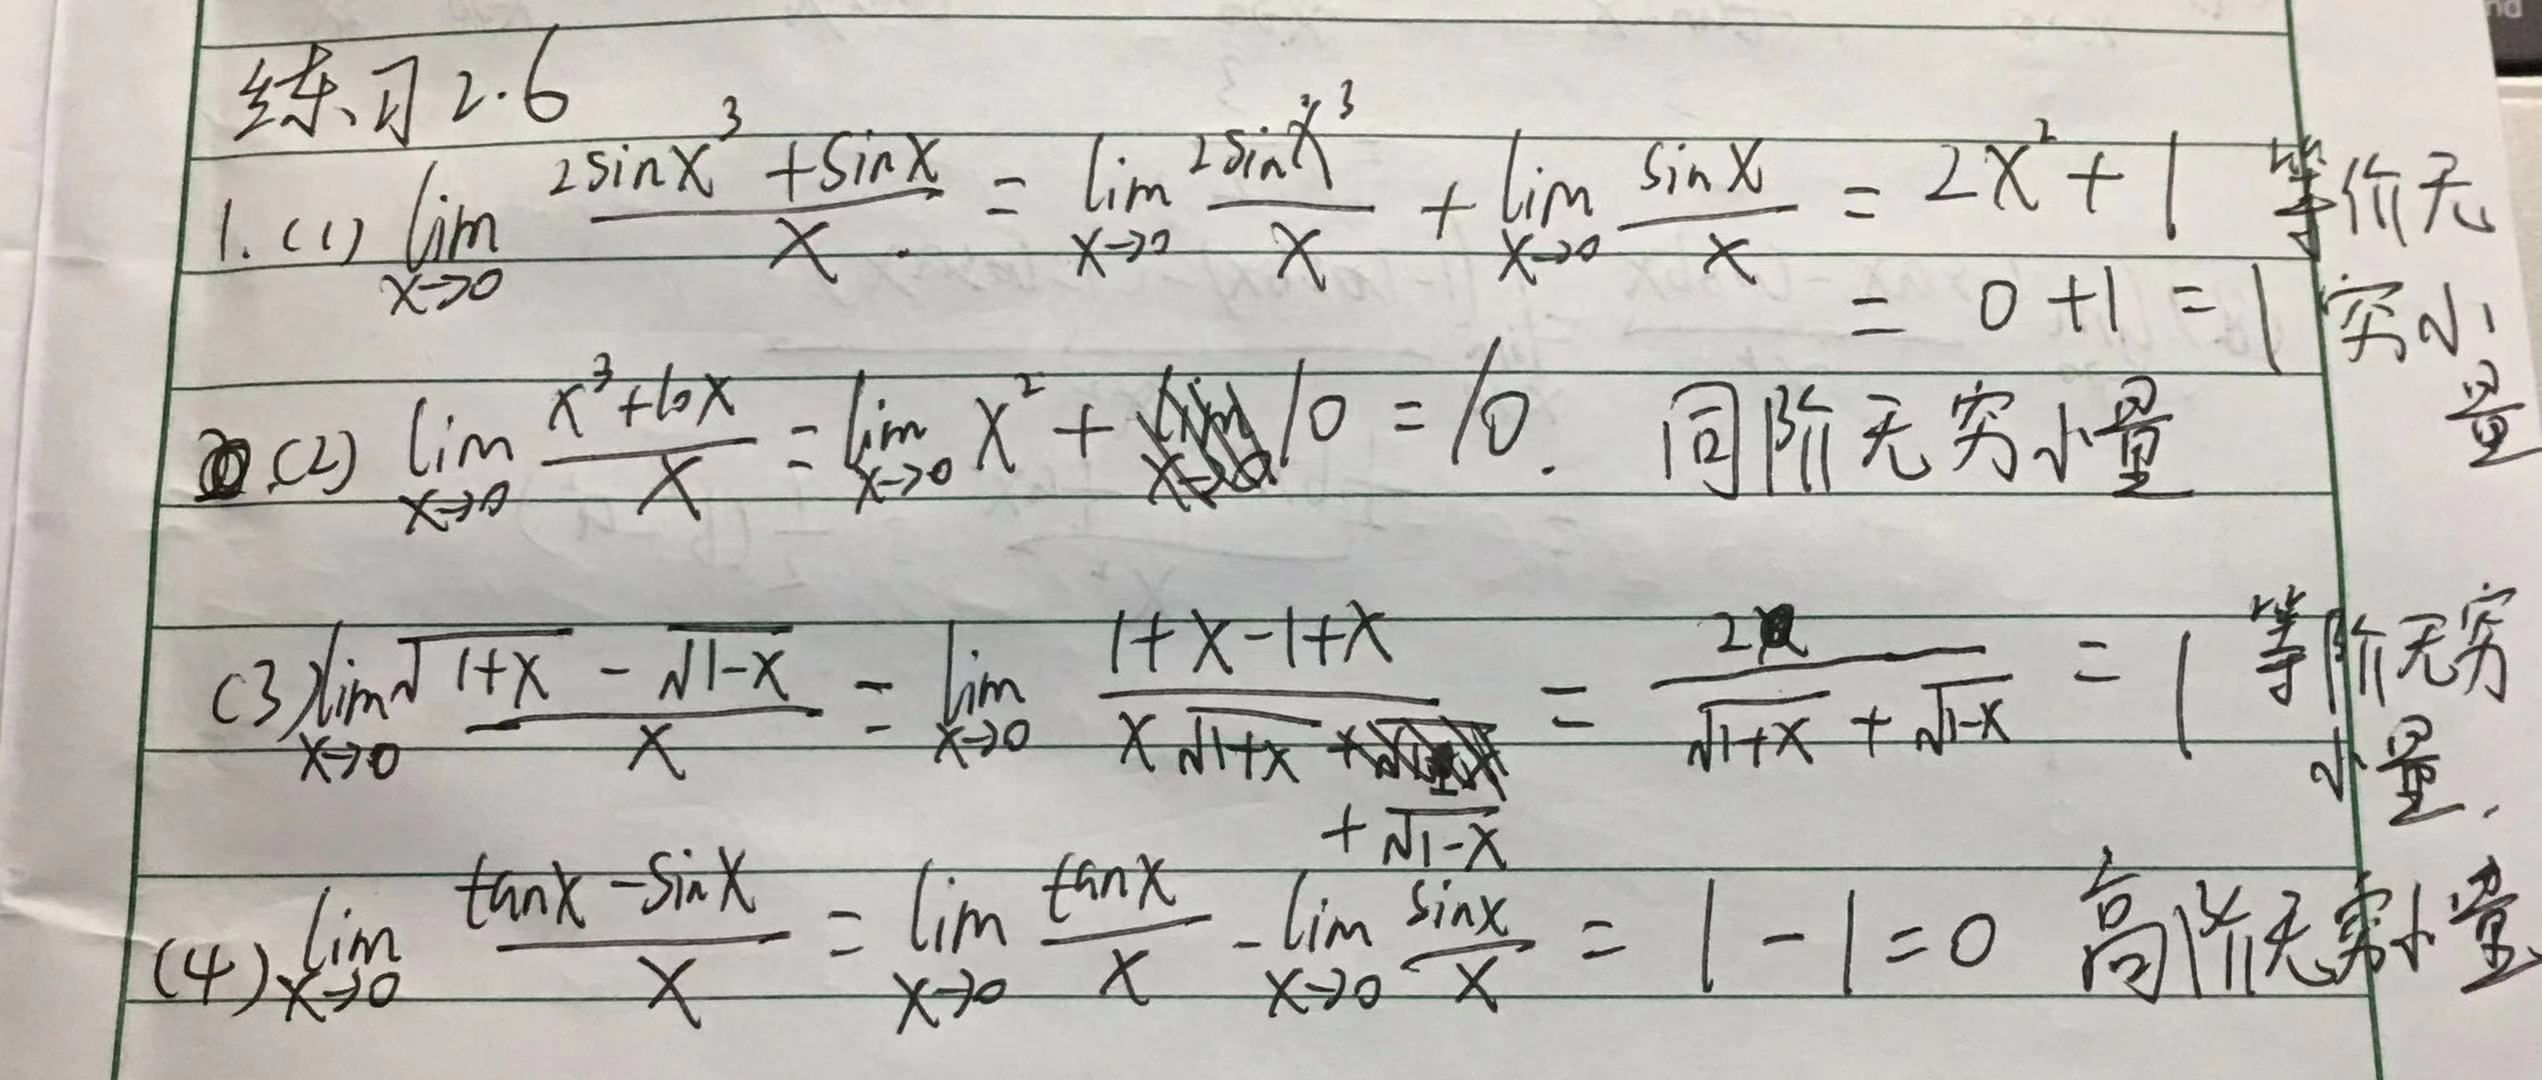 练习2.6
1.(1) lim x→0 (2sinx³+sinx)/x = lim x→0 2sinx³/x + lim x→0 sinx/x = 2x²+1 等价无
= 0+1 = 1 穷小
量
(2) lim x→0 (x³+10x)/x = lim x→0 x² + 10 = 10. 同阶无穷小量
(3) lim x→0 (√(1+x) - √(1-x))/x = lim x→0 (1+x-1+x)/(x √(1+x) + √(1-x)) = 2/(√(1+x) + √(1-x)) = 1 等阶无穷
小量.
(4) lim x→0 (tanx-sinx)/x = lim x→0 tanx/x - lim x→0 sinx/x = 1-1=0 高阶无穷小量